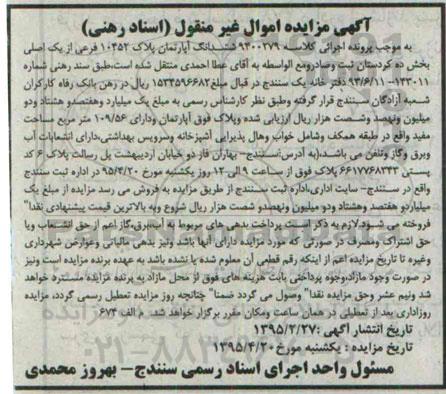 آگهی مزایده اموال غیر منقول (اسناد رهنی)
به موجب پرونده اجرائی کلاسه ۹۴۰۰۲۷۹ ششدانگ آپارتمان پلاک ۱۰۴۵۲ فرعی از یک اصلی
بخش ده کردستان ثبت وصادرومع الواسطه به آقای عطا احمدی منتقل شده است،طبق سند رهنی شماره
۱۴۳۰۱۱-۹۳/۶/۱۱ دفتر خانه یک سنندج در قبال مبلغ۱۵۳۴۵۹۶۶۸۲ ریال در رهن بانک رفاه کارگران
شعبه آزادگان سنندج قرار گرفته وطبق نظر کارشناس رسمی به مبلغ یک میلیارد وهفتصدو هشتاد ودو
میلیون ونهصد وشصت هزار ریال ارزیابی شده وپلاک فوق آپارتمان ودارای ۱۰۹/۵۶ متر مربع مساحت
مفید واقع در طبقه همکف وشامل خواب وهال پذیرایی آشپزخانه وسرویس بهداشتی،دارای انشعابات آب
وبرق وگاز وتلفن می باشد،(به آدرس:سنندج- بهاران فاز دو خیابان اردیبهشت پل رسالت پلاک ۶ کد
پستی ۶۶۱۷۷۶۸۳۴۳ پلاک فوق از ساعت ۹ الی ۱۲ روز یکشنبه مورخ ۹۵/۴/۲۰ در اداره ثبت سنندج
واقع در سنندج- سایت اداری،اداره ثبت سنندج از طریق مزایده به فروش می رسد مزایده از مبلغ یک
میلیاردو هفتصد وهشتاد ودو میلیون ونهصدو شصت هزار ریال شروع وبه بالاترین قیمت پیشنهادی نقدا"
فروخته می شود.لازم به ذکر است پرداخت بدهی های مربوط به آب،برق،گاز اعم از حق انشعاب ویا
حق اشتراک ومصرف در صورتی که مورد مزایده دارای آنها باشد ونیز بدهی مالیاتی وعوارض شهرداری
وغیره تا تاریخ مزایده اعم از اینکه رقم قطعی آن معلوم شده یا نشده باشد به عهده برنده مزایده است ونیز
در صورت وجود مازاد،وجوه پرداختی بابت هزینه های فوق از محل مازاد به برنده مزایده مسترد خواهد
شد ونیم عشر وحق مزایده نقدا" وصول می گردد ضمنا" چنانچه روز مزایده تعطیل رسمی گردد، مزایده
روزاداری بعد از تعطیلی در همان ساعت ومکان مقرر برگزار خواهد شد. م الف ۶۷۴
تاریخ انتشار آگهی :۱۳۹۵/۳/۲۷
تاریخ مزایده : یکشنبه مورخ ۱۳۹۵/۴/۲۰
مسئول واحد اجرای اسناد رسمی سنندج- بهروز محمدی